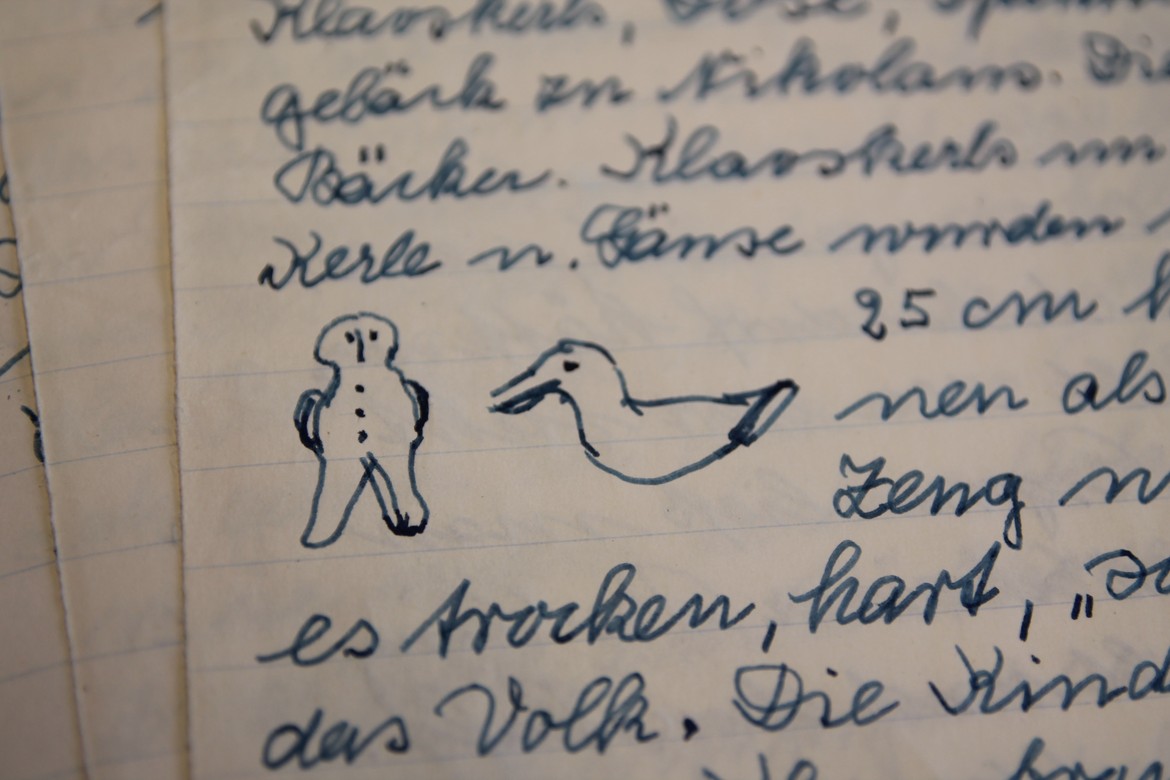 Klaoskerls,
gebäck zu Nikolaus. Die
Bäcker. Klaoskerls un
Kerle u. Gänse wurden
25 cm h
nen als
Zeug
es trocken, hart, „so
das Volk. Die Kind